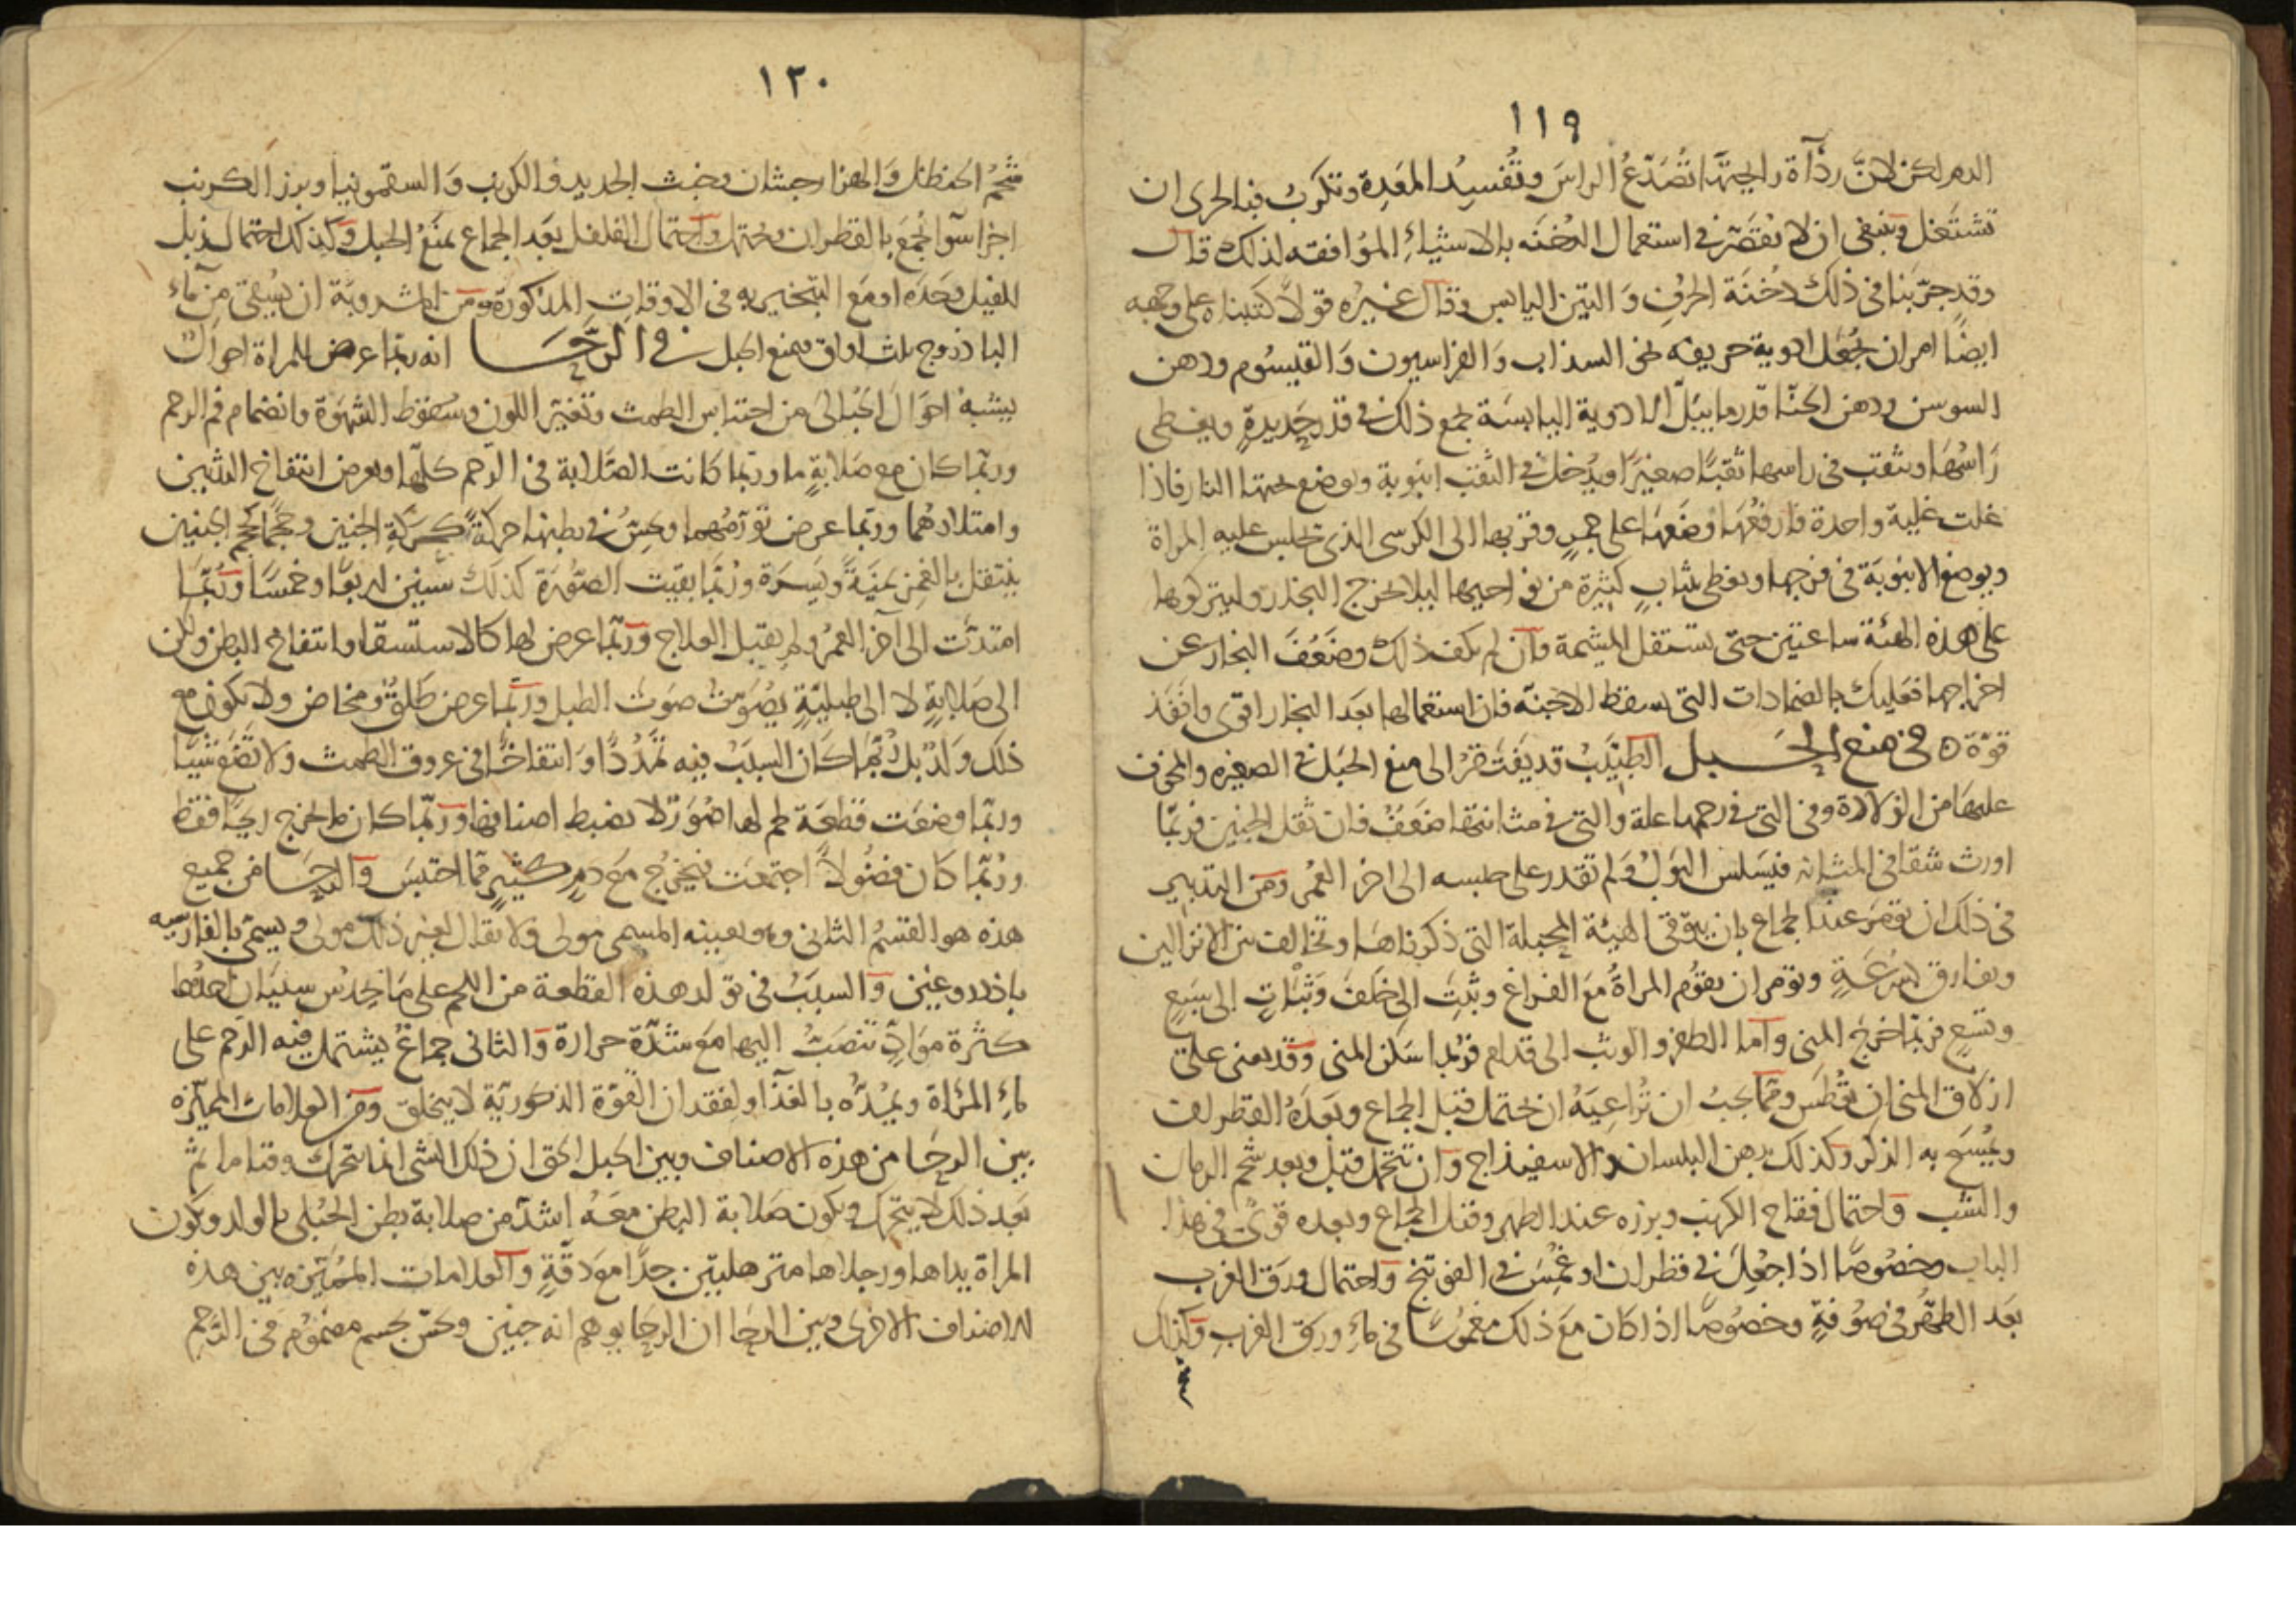 ١١٩
الدم لكن لان رداءة رايحتها تصدع الراس وتفسد المعدة وتكرب فبالحرى ان
تشتغل وينبغى ان لا يقصر فى استعمال الدخنه بالاشياء الموافقه لذلك قال
وقد جربنا فى ذلك دخنة الحرف والتين اليابس وقال غيره قولا كتبناه على وجهه
ايضا امر ان يجعل ادوية حريفه نحو السذاب والفراسيون والقيسوم ودهن
السوسن ودهن الحنا قدر ما يبل الادوية اليابسة يجمع ذلك فى قدر جديدة ويغطى
راسها ويثقب فى راسها ثقبا صغيرا ويدخل فى الثقب انبوبة ويوضع تحتها النار فاذا
غلت غلية واحدة فارفعها وضعها على جمر وقربها الى الكرسى الذى تجلس عليه المراة
ويوضع الانبوبة فى فرجها ويغطى بثياب كثيرة من نواحيها ليلا يخرج البخار وليتركوها
على هذه الهئة ساعتين حتى يستقل المشيمة وان لم يكف ذلك وضعف البخار عن
اخراجها فعليك بالضمادات التى يسقط الاجنة فان استعمالها بعد البخار اقوى وانفذ
قوة ه فى منع الحبل الطبيب قد يفتقر الى منع الحبل فى الصغيره والمخوف
عليها من الولادة وفى التى فى رحمها علة والتى فى مثانتها ضعف فان ثقل الجنين فربما
اورث شقا فى المثانه فيسلس البول ولم تقدر على حبسه الى اخر العمر ومن التدبير
فى ذلك ان يؤمر عند الجماع بان يتوقى الهيئة المحبلة التى ذكرناها وتخالف بين الانزالين
ويفارق بسرعة وتؤمر ان يقوم المراة مع الفراغ وتثب الى خلف وثبات الى سبع
وتسع فربما خرج المنى واما الطفر والوثب الى قدام فربما سكن المنى وقد يعنى على
ازلاق المنى ان تعطس ومما يجب ان تراعيه ان تحتمل قبل الجماع وبعده القطران
ويمسح به الذكر وكذلك بدهن البلسان والاسفيذاج وان تتحمل قبل وبعد شحم الرمان
والشب واحتمال فقاح الكرنب وبزره عند الطهر وقبل الجماع وبعده قوى فى هذا
الباب وخصوصا اذا جعل فى قطران او غمس فى الفوتنج واحتمال ورق الغرب
بعد الطهر فى صوفة وخصوصا اذا كان مع ذلك مغموسا فى ماء ورق الغرب وكذلك
١٢٠
شحم الحنظل والهزارجشان وخبث الحديد والكرنب والسقمونيا وبزر الكرنب
اجزا سوا يجمع بالقطران ويحتمل واحتمال الفلفل بعد الجماع يمنع الحبل وكذلك احتمال زبل
الفيل وحده او مع التبخير به فى الاوقات المذكورة ومن المشروبة ان يسقى من ماء
الباذروج ثلث اواق يمنع الحبل فى الرحا انه ربما عرض للمراة احوال
يشبه احوال الحبالى من احتباس الطمث وتغير اللون وسقوط الشهوة وانضمام فم الرحم
وربما كان مع صلابة ما وربما كانت الصلابة فى الرحم كلها ويعرض انتفاخ الثديين
وامتلاءهما وربما عرض تورمهما ويحس فى بطنها حركة كحركة الجنين وحجما كحجم الجنين
ينتقل بالغمز يمنة ويسرة وربما بقيت الصورة كذلك سنين اربعا وخمسا وربما
امتدت الى اخر العمر ولم يقبل العلاج وربما عرض لها كالاستسقا وانتفاخ البطن ولكن
الى صلابة لا الى طبلية يصوت صوت الطبل وربما عرض طلق ومخاض ولا يكون مع
ذلك ولد بل ربما كان السبب فيه تمددا وانتفاخا فى عروق الطمث ولا تضع شيئا
وربما وضعت قطعة لحم لها صورة لا يضبط اصنافها وربما كان ما يخرج ريحا فقط
وربما كان فضولا اجتمعت فيخرج مع دم كثير مما احتبس والرحا من جميع
هذه هو القسم الثانى وهو بعينه المسمى مولى ولا يقال لغير ذلك مولى ويسمى بالفارسيه
باذدروغين والسبب فى تولد هذه القطعة من اللحم على ما يحدس سببان احدهما
كثرة مواد تنصب اليها مع شدة حرارة والثانى جماع يشتمل فيه الرحم على
ماء المراة ويمده بالغذا ولفقدان القوة الذكورية لا يتخلق ومن العلامات المميزه
بين الرحا من هذه الاصناف وبين الحبل الحق ان ذلك الشى انما يتحرك وقتا ما ثم
بعد ذلك لا يتحرك ويكون صلابة البطن معه اشد من صلابة بطن الحبلى بالولد ويكون
المراة يداها ورجلاها مترهلتين جدا مع دقة والعلامات المميزه بين هذه
الاصناف الاخرى وبين الرحا ان الرحا يوهم انه جنين ويحس بجسم مضموم فى الرحم